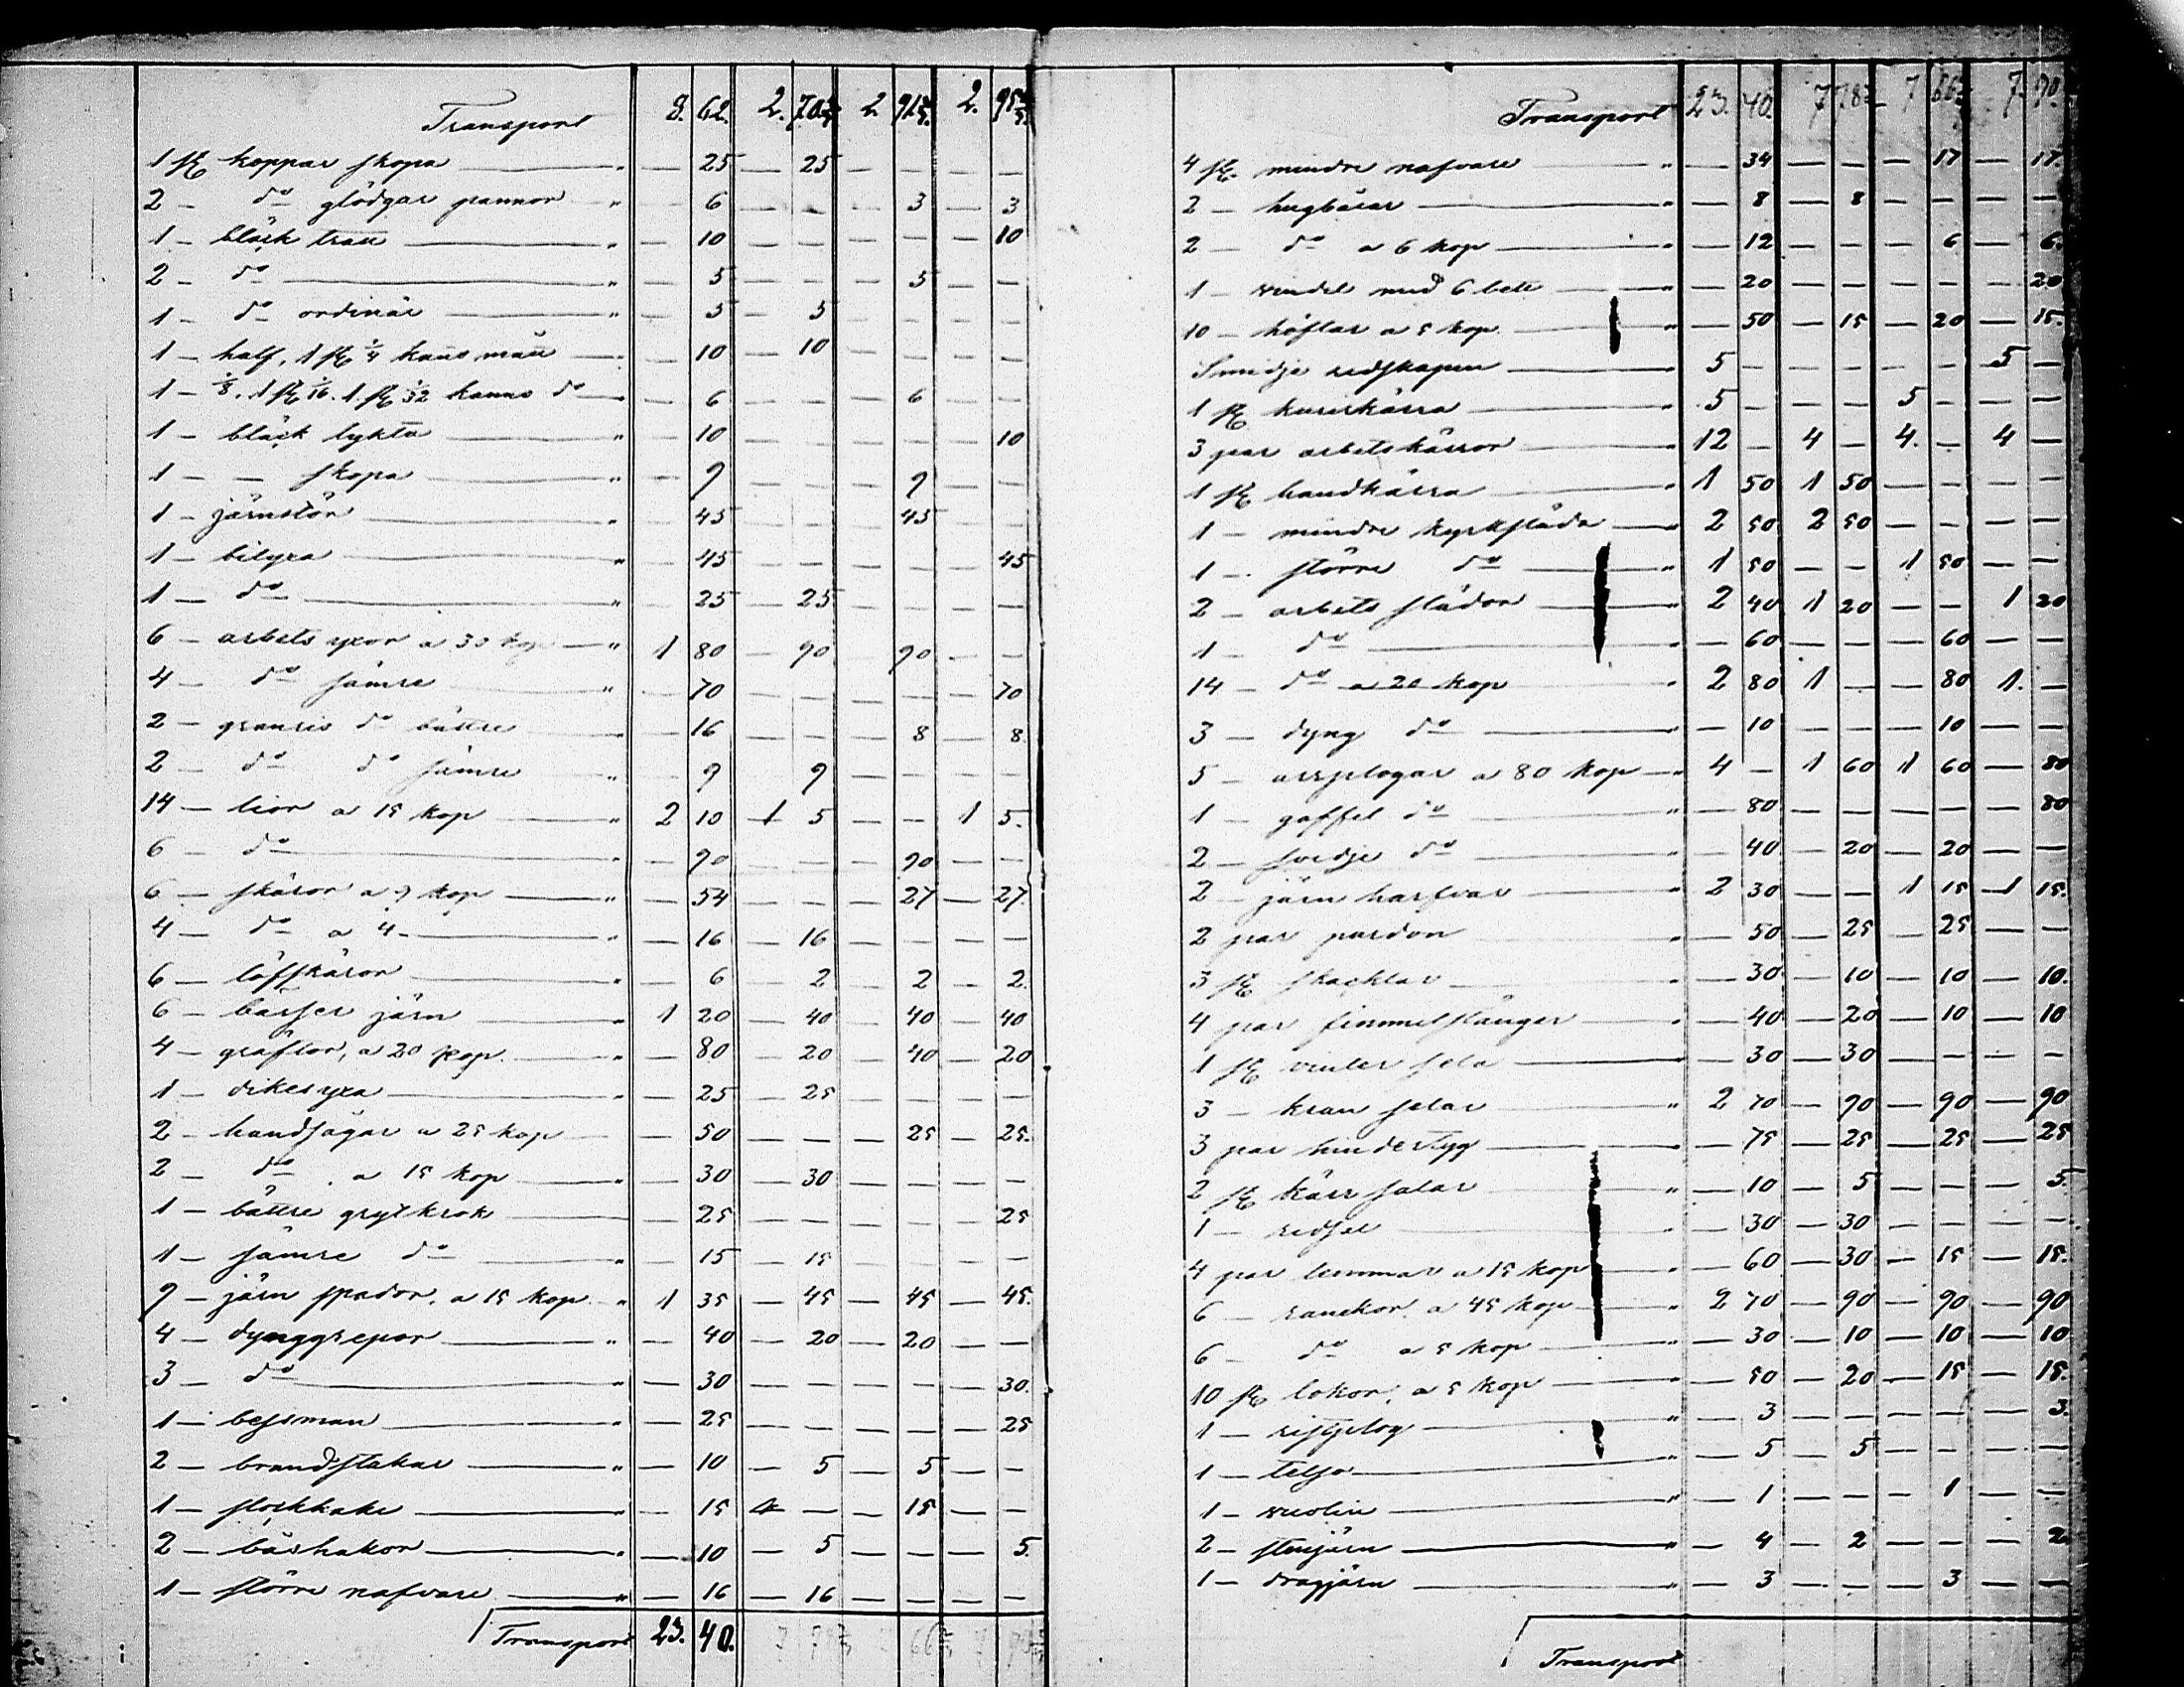 Transport 8. 62. 2. 70⅔ 2 91⅔ 2. 95⅔
1 st. koppar skopa — 25 — 25 — — — —
2 — do glödgar pannor — 6 — — — 3 — 3
1 — bläck tratt — 10 — — — — — 10
2 — do — 5 — — — 5 — —
1 — do ordinär — 5 — 5 — — — —
1 — half, 1 st. ¼ kans mått — 10 — 10 — — — —
1 — ⅛. 1 st. 1/16. 1 st. 1/32 kanns do — 6 — — — 6 — —
1 — bläck lykta — 10 — — — — — 10
1 — — skopa — 9 — — — 9 — —
1 — järnstör — 45 — — — 45 — —
1 — bilyxa — 45 — — — — — 45
1 — do — 25 — 25 — — — —
6 — arbets yxor a 30 kop — 1 80 — 90 — 90 — —
4 — do sämre — 70 — — — — — 70
2 — granris do bättre — 16 — — — 8 — 8
2 — do do sämre — 9 — 9 — — — —
14 — lior a 15 kop — 2 10 1 5 — — 1 5.
6 — do — 90 — — — 90 — —
6 — skäror a 9 kop — 54 — — — 27 — 27.
4 — do a 4 — — 16 — 16 — — — —
6 — löfskäror — 6 — 2 — 2 — 2.
6 — bärser järn — 1 20 — 40 — 40 — 40
4 — gräftor, a 20 kop. — 80 — 20 — 40 — 20
1 — dikesyxa — 25 — 25 — — — —
2 — handsågar a 25 kop — 50 — — — 25 — 25.
2 — do a 15 kop — 30 — 30 — — — —
1 — bättre grytkrok — 25 — — — — — 25
1 — sämre do — 15 — 15 — — — —
9 — järn spador, a 15 kop. 1 35 — 45 — 45 — 45.
4 — dynggrepor — 40 — 20 — 20 — —
3 — do — 30 — — — — — 30.
1 — bessman — 25 — — — — — 25
2 — brandstakar — 10 — 5 — 5 — —
1 — stockhake — 15 — — — 15 — —
2 — båshakor — 10 — 5 — — — 5.
1 — större nafvare — 16 — 16 — — — —
Transport 23. 40.
Transport 23. 40. 7 78⅔ 7 66⅔ 7. 90.
4 st. mindre nafvare — 34 — — — 17 — 17.
2 — hugbårar — 8 — 8 — — — —
2 — do a 6 kop — 12 — — — 6 — 6.
1 — vindel med 6 bett — 20 — — — — — 20
10 — höflar a 5 kop — 50 — 15 — 20 — 15.
Smidje redskapen — 5 — — — — — 5 —
1 st. kurirkärra — 5 — — — 5 — — —
3 par arbetskärror — 12 — 4 — 4. — 4 —
1 st. handkärra — 1 50 1 50 — — — —
1 — mindre kyrksläda — 2 50 2 50 — — — —
1 — större do — 1 50 — — 1 50 — —
2 — arbets slädor — 2 40 1 20 — — 1 20
1 — do — 60 — — — 60 — —
14 — do a 20 kop — 2 80 1 — — 80 1. —
3 — dyng do — 10 — — — 10 — —
5 — arsplogar a 80 kop — 4 — 1 60 1 60 — 80
1 — gaffel do — 80 — — — — — 80
2 — svedje do — 40 — 20 — 20 — —
2 — järn harfvar — 2 30 — — 1 15 1 15.
2 par pardon — 50 — 25 — 25 — —
3 st. skacklar — 30 — 10 — 10 — 10.
4 par fimmelstänger — 40 — 20 — 10 — 10
1 st. vinter sela — 30 — 30 — — — —
3 — kran selar — 2 70 — 90 — 90 — 90
3 par hindertyg — 75 — 25 — 25 — 25
2 st. kärr salar — 10 — 5 — — — 5.
1 — ridsal — 30 — 30 — — — —
4 par lemmar a 15 kop — 60 — 30 — 15 — 15.
6 — ranckor, a 45 kop — 2 70 — 90 — 90 — 90
6 — do a 5 kop — 30 — 10 — 10 — 10
10 st. lokor, a 5 kop — 50 — 20 — 15 — 15.
1 — ristplog — 3 — — — — — 3.
1 — telso — 5 — 5 — — — —
1 — vuolin — 1 — — — 1 — —
2 — stenjärn — 4 — 2 — — — 2
1 — dragjärn — 3 — — — 3 — —
Transport